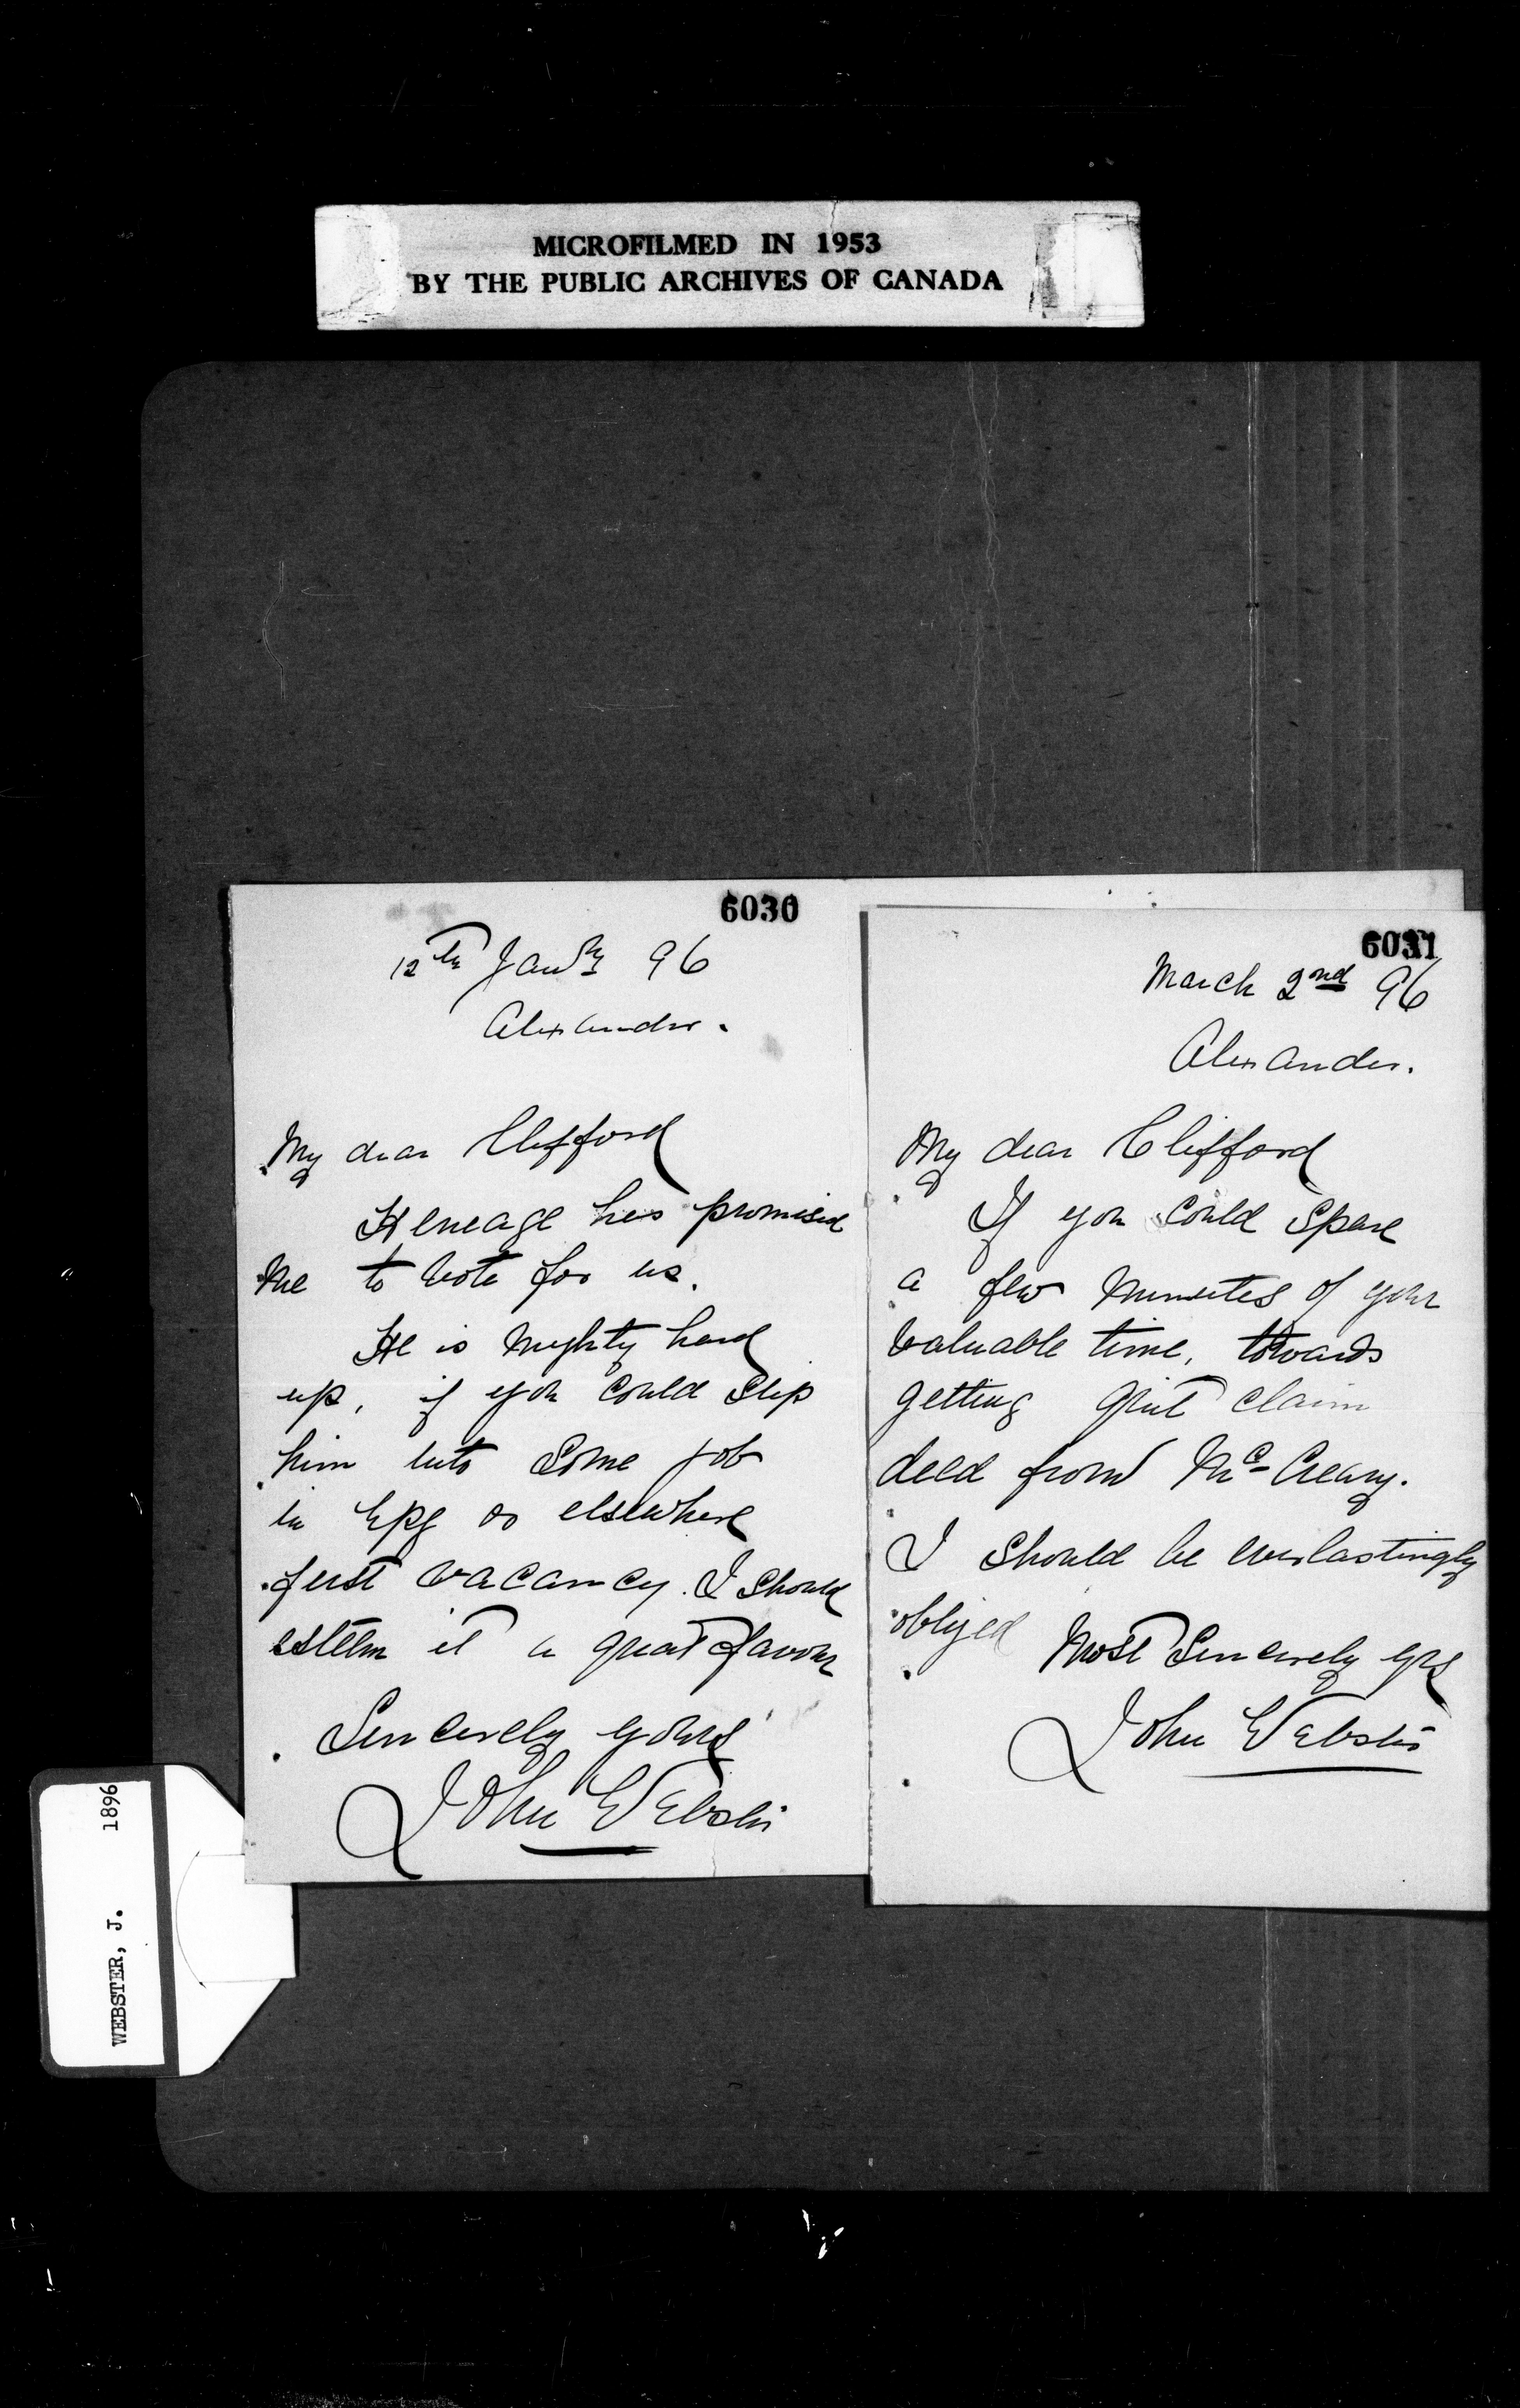 MICROFILMED IN 1953
BY THE PUBLIC ARCHIVES OF CANADA
6030
12th Janry 96
Alexander.
My dear Clifford
Heneage has promised
me to vote for us.
He is mighty hard
up, if you could slip
him into some job
in Wpg or elsewhere
first vacancy. I should
esteem it a great favour
Sincerely yours
John Webster
6031
March 2nd 96
Alexander.
My dear Clifford
If you could spare
a few minutes of your
valuable time, towards
getting quit claim
deed from McCreary.
I should be everlastingly
obliged
Most Sincerely yrs
John Webster
WEBSTER, J. 1896